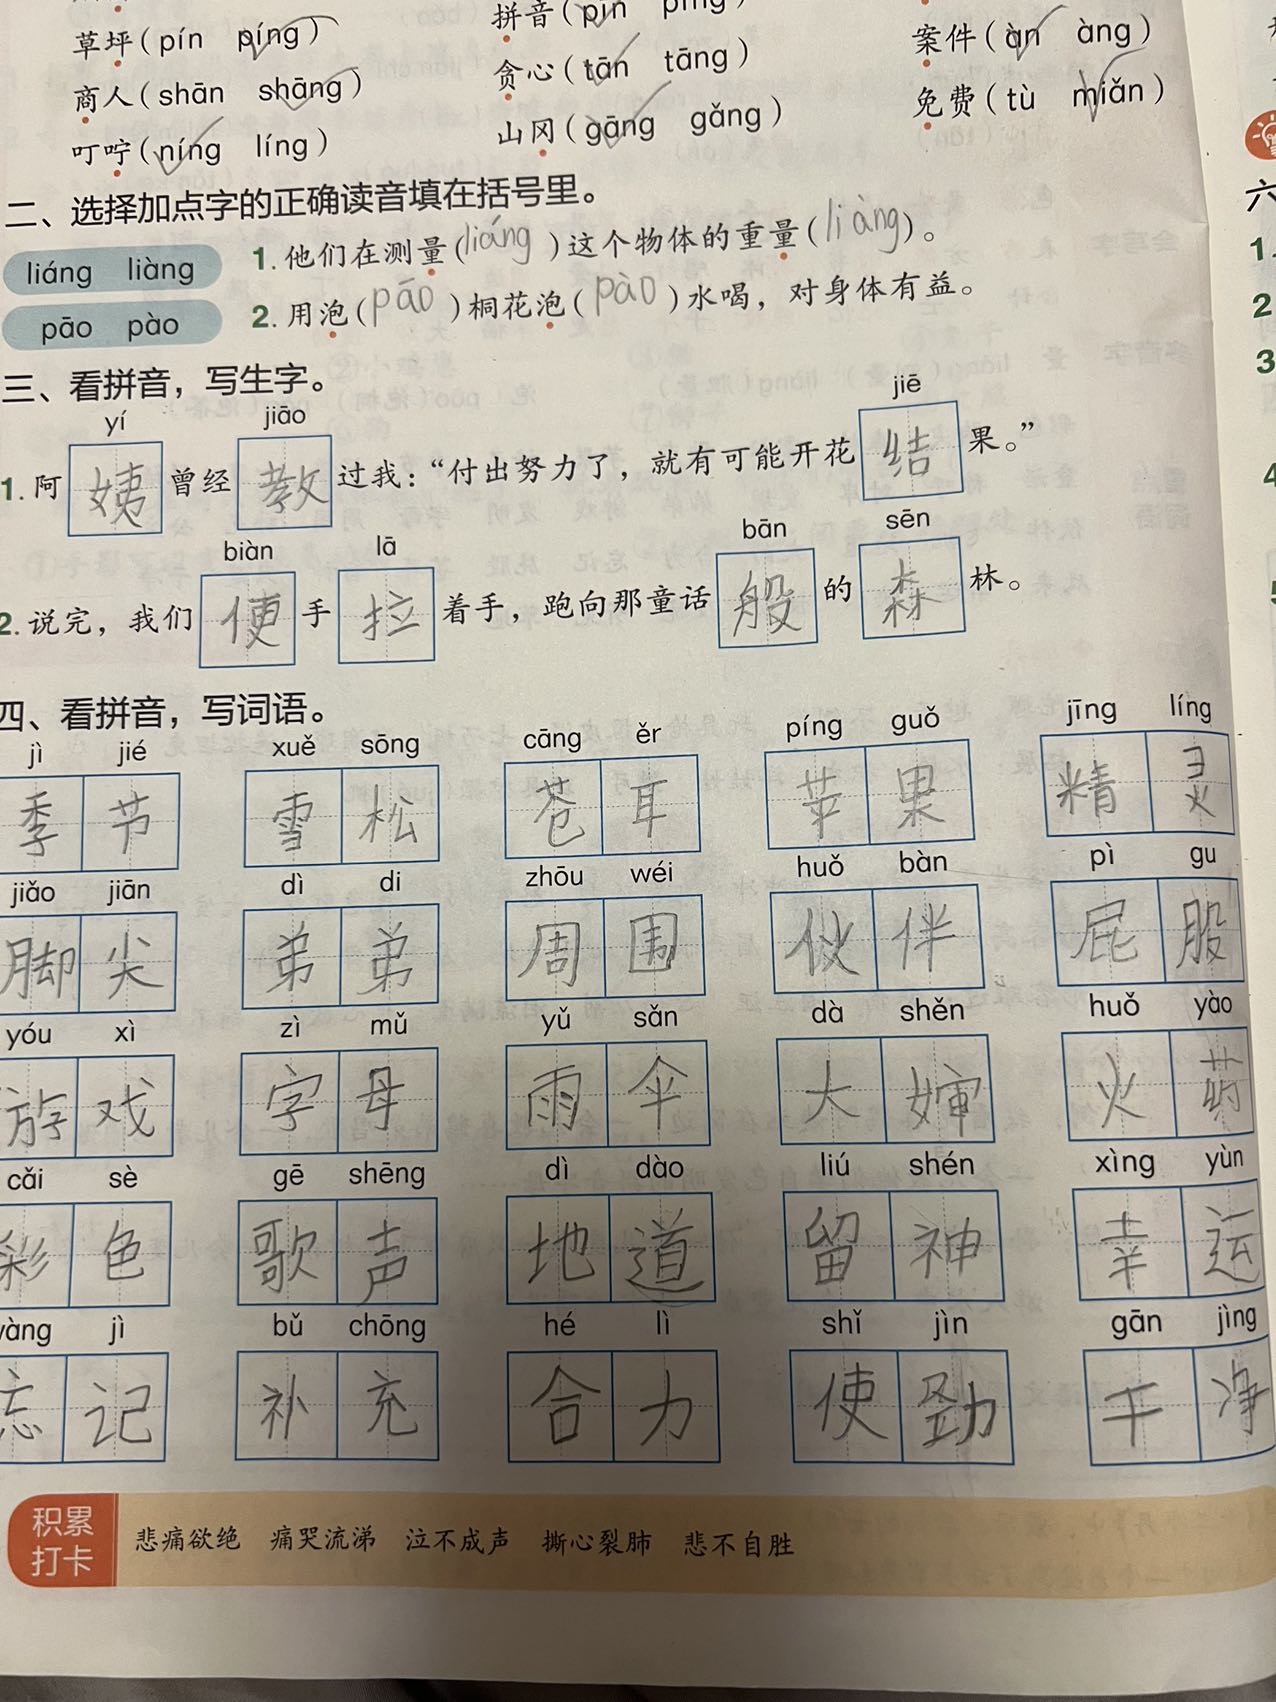 草坪(pín píng) 拼音(pīn pīng) 案件(àn àng)
商人(shān shāng) 贪心(tān tāng) 免费(tù miǎn)
叮咛(níng líng) 山冈(gāng gǎng)
二、选择加点字的正确读音填在括号里。
liáng liàng 1. 他们在测量(liáng)这个物体的重量(liàng)。
pāo pào 2. 用泡(pāo)桐花泡(pào)水喝，对身体有益。
三、看拼音，写生字。
yí jiāo jiē
1. 阿姨曾经教过我：“付出努力了，就有可能开花结果。”
biàn lā bān sēn
2. 说完，我们便手拉着手，跑向那童话般的森林。
四、看拼音，写词语。
jì jié xuě sōng cāng ěr píng guǒ jīng líng
季节 雪松 苍耳 苹果 精灵
jiǎo jiān dì di zhōu wéi huǒ bàn pì gu
脚尖 弟弟 周围 伙伴 屁股
yóu xì zì mǔ yǔ sǎn dà shěn huǒ yào
游戏 字母 雨伞 大婶 火药
cǎi sè gē shēng dì dào liú shén xìng yùn
彩色 歌声 地道 留神 幸运
wàng jì bǔ chōng hé lì shǐ jìn gān jìng
忘记 补充 合力 使劲 干净
积累
打卡
悲痛欲绝 痛哭流涕 泣不成声 撕心裂肺 悲不自胜
六
1.
2
3
4
5